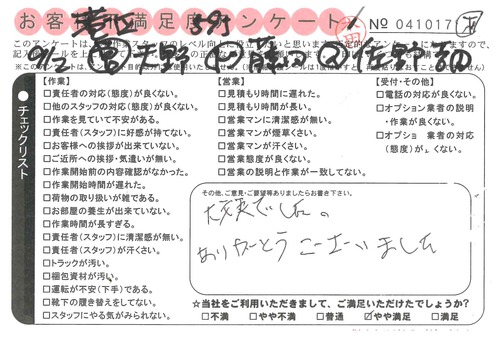 お客様満足度アンケート
№ 041017
チェックリスト
【作業】
□責任者の対応(態度)が良くない。
□他のスタッフの対応(態度)が良くない。
□作業を見ていて不安がある。
□責任者(スタッフ)に好感が持てない。
□お客様への挨拶が出来ていない。
□ご近所への挨拶・気遣いが無い。
□作業開始前の内容確認がなかった。
□作業開始時間が遅れた。
□荷物の取り扱いが雑である。
□お部屋の養生が出来ていない。
□作業時間が長すぎる。
□責任者(スタッフ)に清潔感が無い。
□責任者(スタッフ)が汗くさい。
□トラックが汚い。
□梱包資材が汚い。
□運転が不安(下手)である。
□靴下の履き替えをしてない。
□スタッフにやる気がみられない。
【営業】
□見積もり時間に遅れた。
□見積もり時間が長い。
□営業マンに清潔感が無い。
□営業マンが煙草くさい。
□営業マンが汗くさい。
□営業態度が良くない。
□営業の説明と作業が一致してない。
【受付・その他】
□電話の対応が良くない。
□オプション業者の説明
・作業が良くない。
□オプショ 業者の対応
(態度)が良くない。
その他、ご意見・ご要望等ありましたらお書き下さい。
大変でしたの
ありがとうございました
☆当社をご利用いただきまして、ご満足いただけたでしょうか?
□不満 □やや不満 □普通 □やや満足 □満足